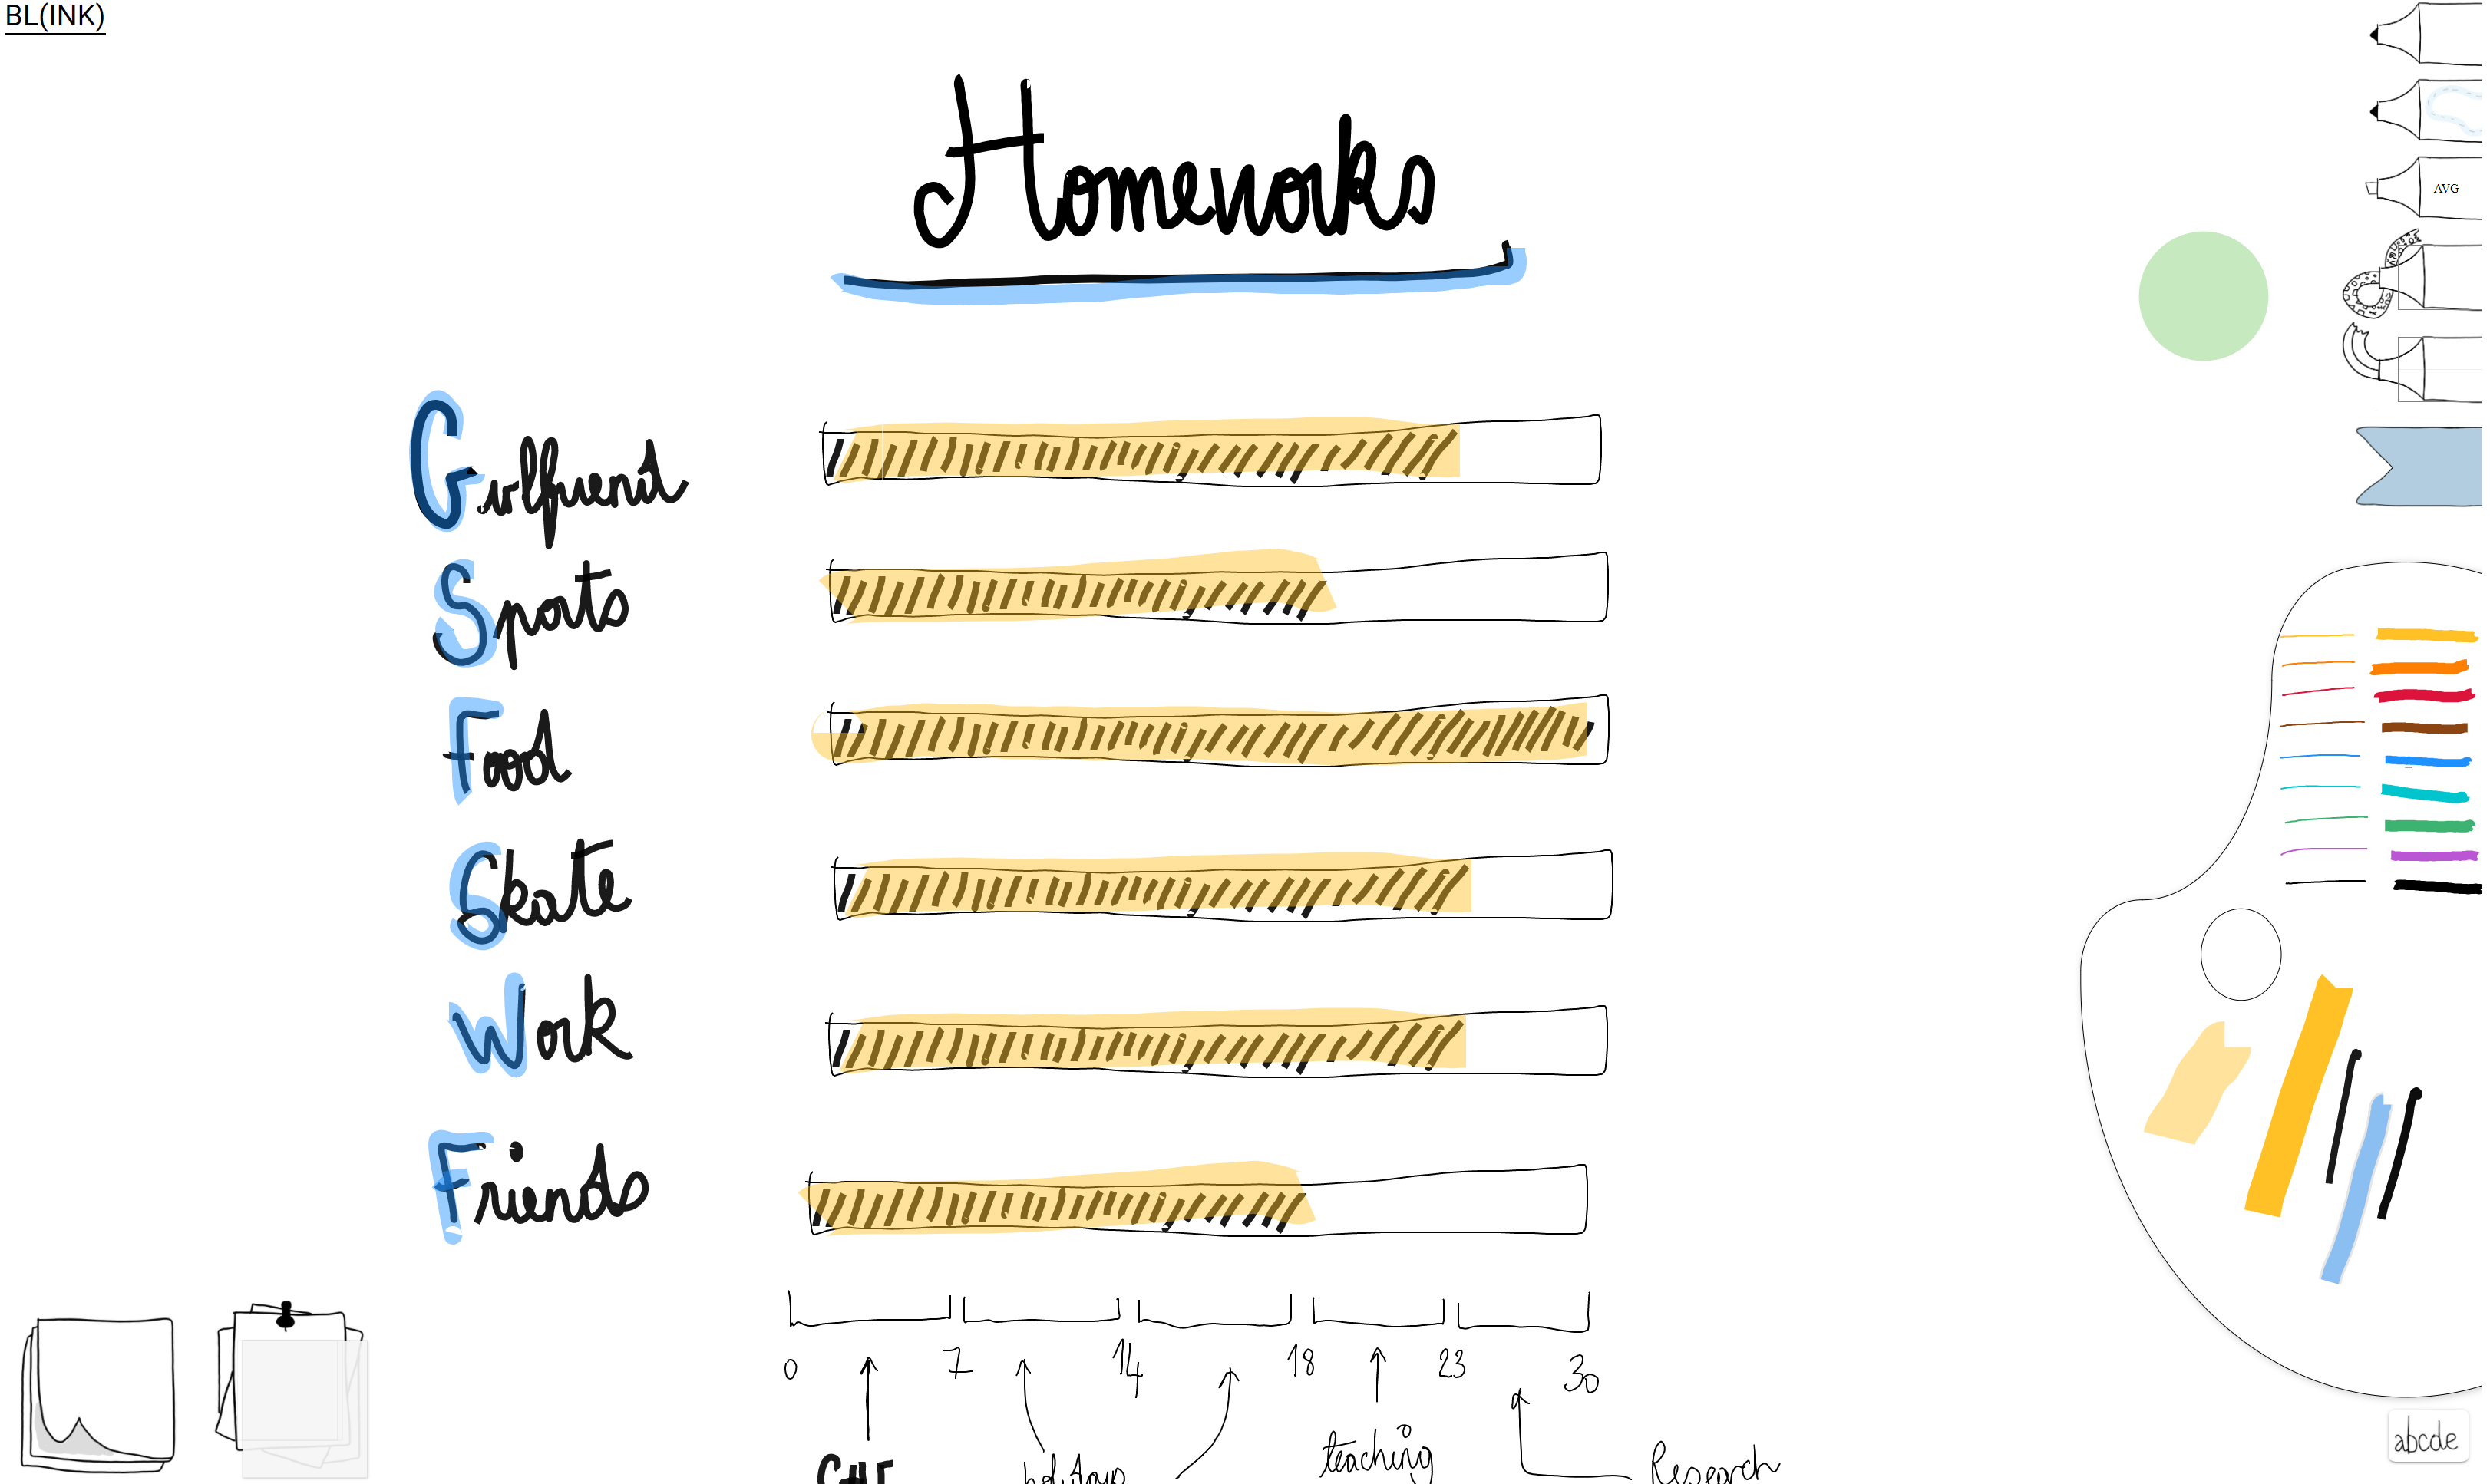 BL(INK)
Homeworks
AVG
Girlfriend
Sports
Food
Skate
Work
Friends
0 7 14 18 23 30
CHI holidays teaching Research
abcde